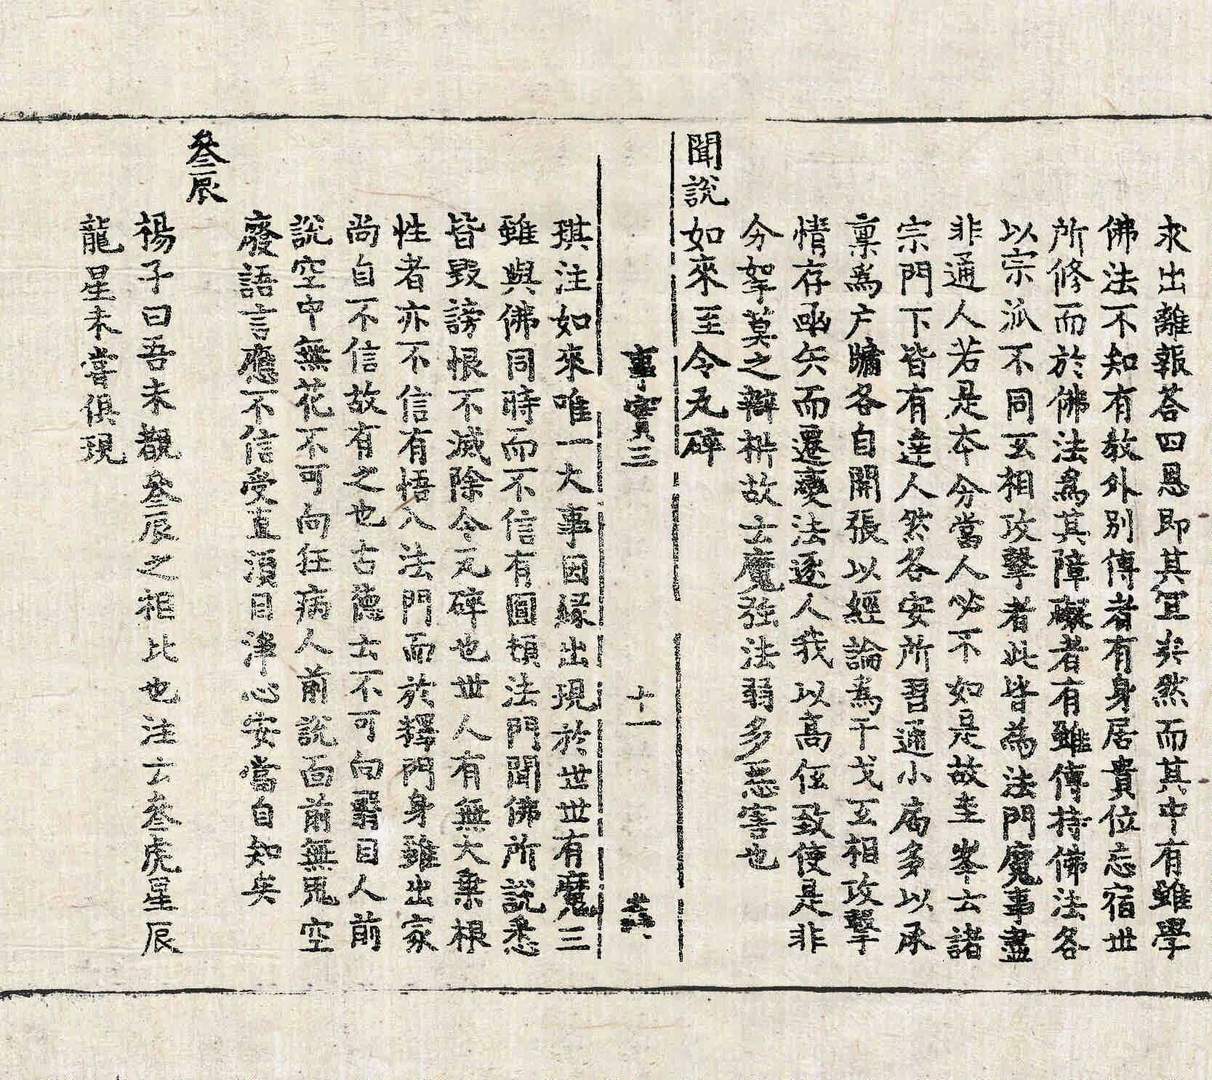 求出離報荅四恩即其冝矣然而其中有雖學
佛法不知有教外別傳者有身居貴位忘宿世
所修而於佛法爲其障礙者有雖傳持佛法各
以宗派不同互相攻擊者此皆為法門魔事盡
非通人若是本分當人必不如是故圭峯云諸
宗門下皆有達人然各安所習通小局多以承
稟為户牖各自開張以經論為干戈互相攻擊
情存函矢而遷變法逐人我以高低致使是非
分拏莫之辯析故云魔强法弱多惡害也
聞說如來至令瓦碎
事實三 十一
琪注如來唯一大事因緣出現於世世有魔三
雖與佛同時而不信有圓頓法門聞佛所說悉
皆毀謗恨不滅除令瓦碎也世人有無大乗根
性者亦不信有悟入法門而於釋門身雖出家
尚自不信故有之也古德云不可向翳目人前
說空中無花不可向狂病人前說面前無鬼空
廢語言應不信受直須目淨心安當自知矣
叅辰
楊子曰吾未觀叅辰之相比也注云叅虎星辰
龍星未甞俱現